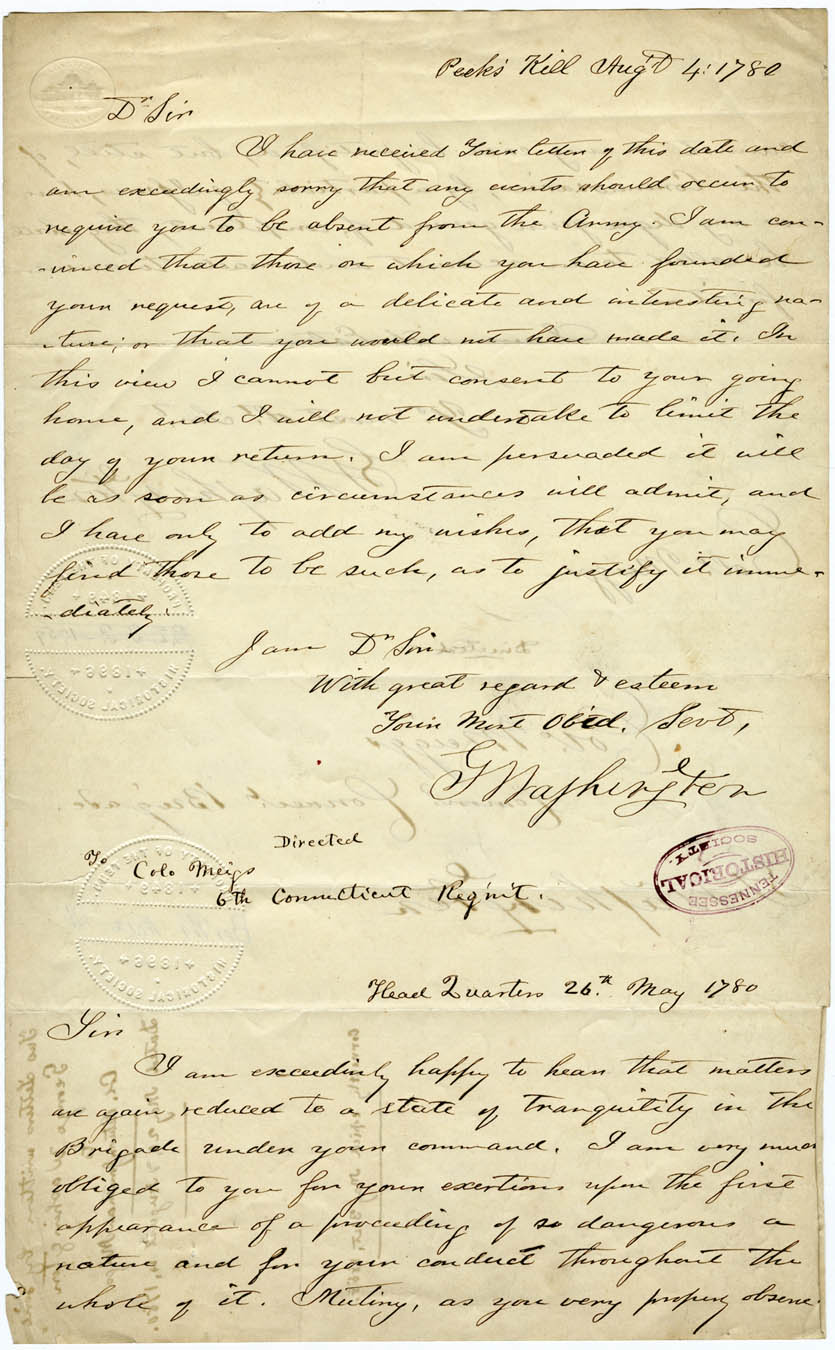 Peek's Kill Aug't 4: 1780
Dr Sir
I have received Your letter of this date and
am exceedingly sorry that any events should occur to
require you to be absent from the Army. I am con-
-vinced that those on which you have founded
your request, are of a delicate and interesting na-
-ture; or that you would not have made it. In
this view I cannot but consent to your going
home, and I will not undertake to limit the
day of your return. I am persuaded it will
be as soon as circumstances will admit, and
I have only to add my wishes, that you may
find those to be such, as to justify it imme-
-diately.
I am Dr Sir
With great regard & esteem
Your Most Obed. Servt,
GWashington
Directed
To Colo Meigs
6th Connecticut Reg'mt.
TENNESSEE
HISTORICAL
SOCIETY.
Head Quarters 26.th May 1780
Sir
I am exceedinly happy to hear that matters
are again reduced to a state of tranquility in the
Brigade under your command. I am very much
obliged to you for your exertions upon the first
appearance of a proceeding of so dangerous a
nature and for your conduct throughout the
whole of it. Mutiny, as you very propery observe